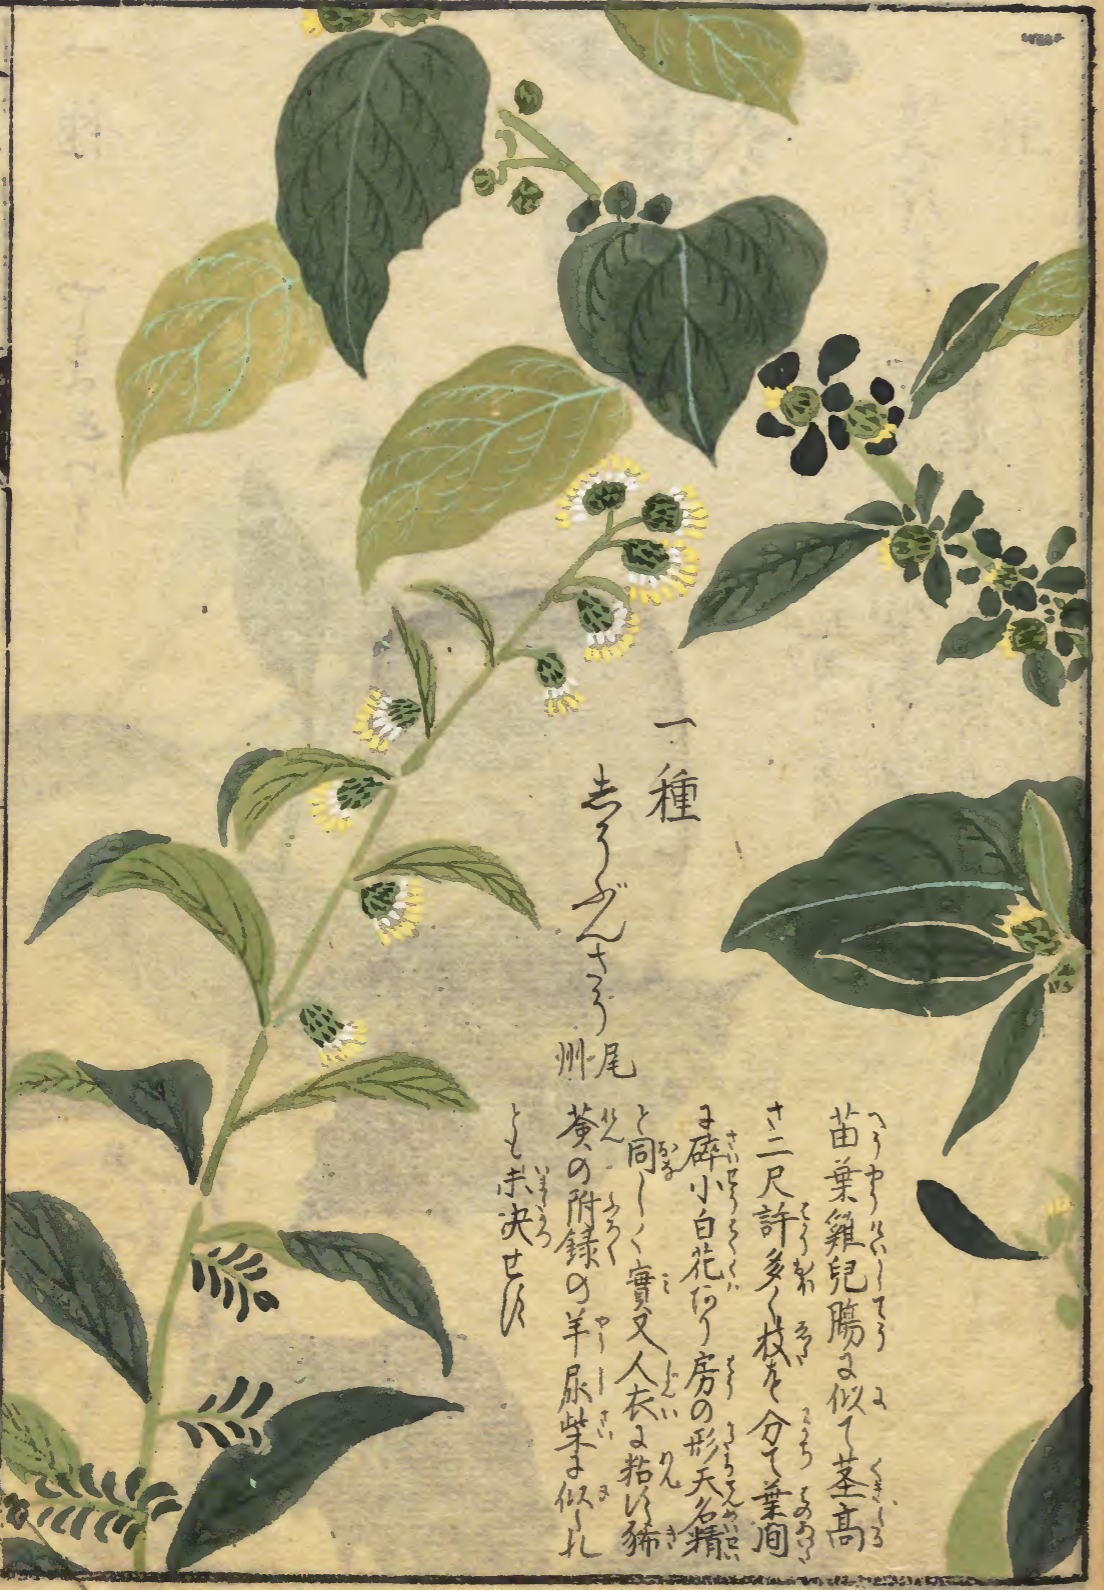 一種
志うぶんさう 尾州
苗葉雞兒腸に似て茎高
さ二尺許多く枝を分て葉間
に碎小白花あり房の形天名精
と同しく實又人衣に粘す豨
薟の附録の羊尿柴に似たれ
とも未决せす